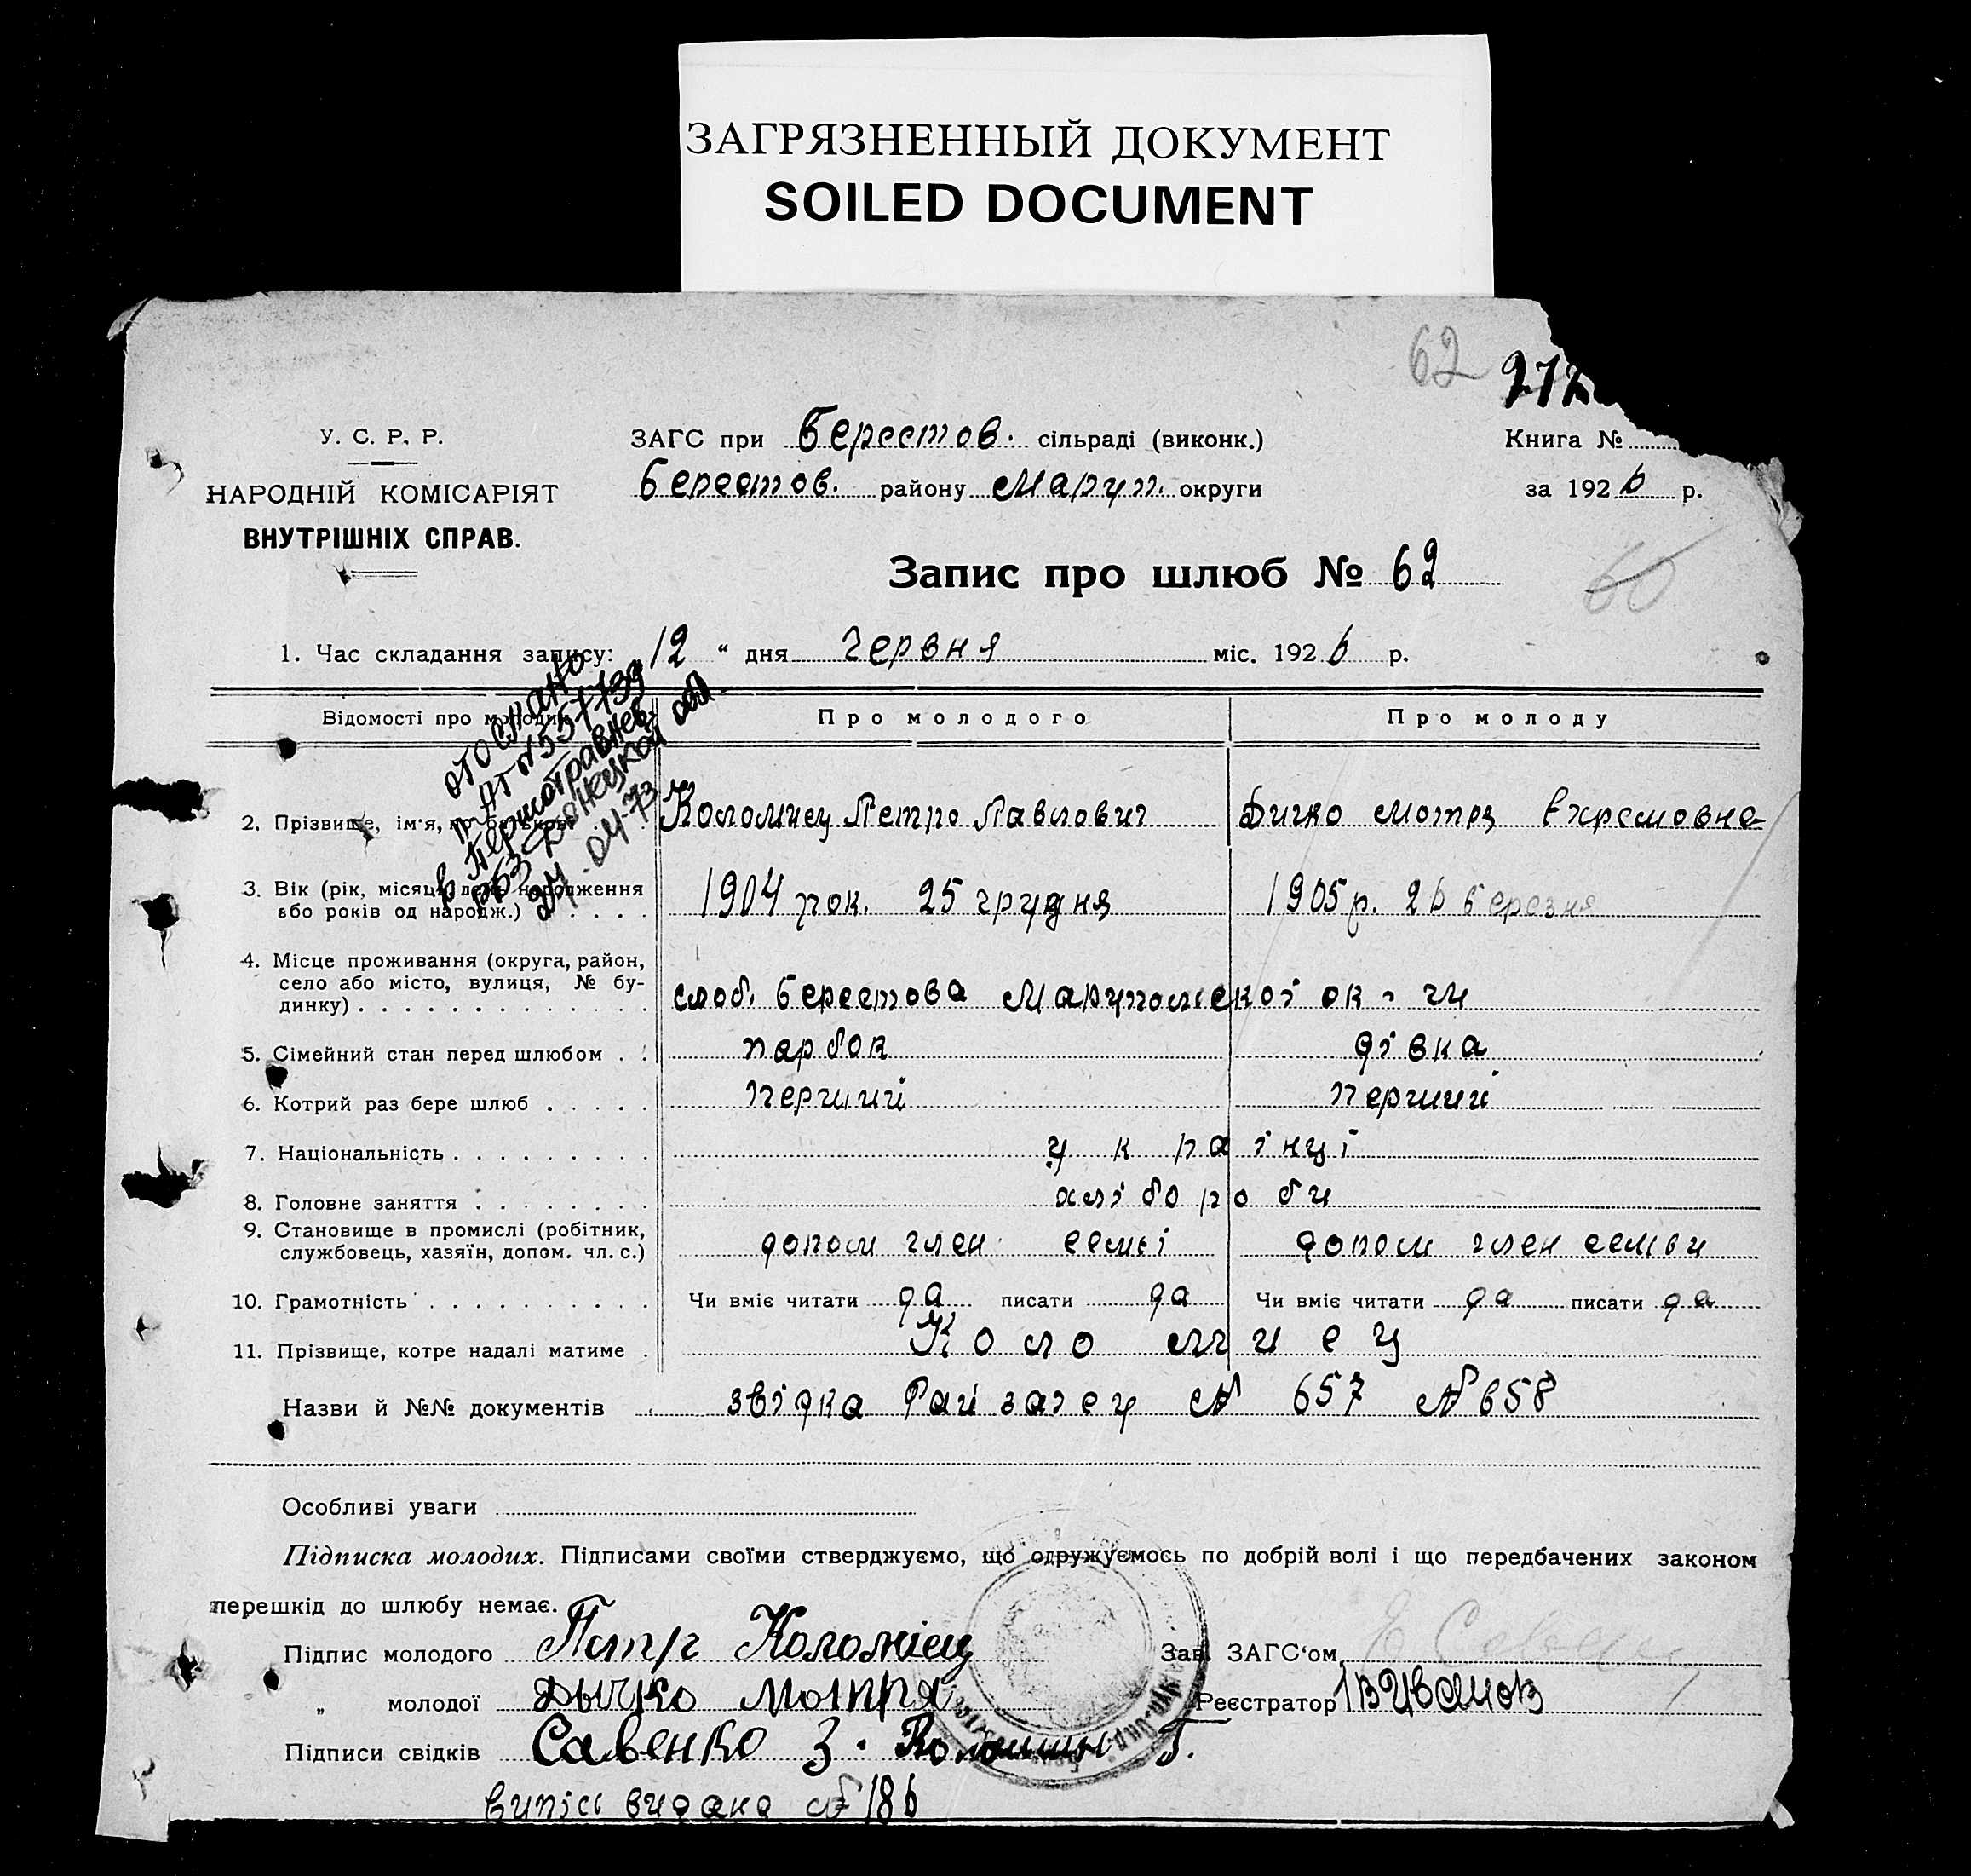 ЗАГРЯЗНЕННЫЙ ДОКУМЕНТ
SOILED DOCUMENT
62
У. С. Р. Р.
НАРОДНІЙ КОМІСАРІЯТ
ВНУТРІШНІХ СПРАВ.
ЗАГС при Берестов. сільраді (виконк.)
Берестов. району Маруп. округи
Книга №
за 1926 р.
Запис про шлюб № 62
60
1. Час складання запису: 12 " дня Червня міс. 1926 р.
отослано
п. АТ № 557739
в Першотравнев.
рзб Донецкой обл.
24.04.73
Відомості про молодих Про молодого Про молоду
2. Прізвище, ім'я, по батькові Коломиец Петро Павлович Дичко Мотря Ехремовна
3. Вік (рік, місяць, день народження або років од народж.) 1904 рок. 25 грудня 1905 р. 26 березня
4. Місце проживання (округа, район, село або місто, вулиця, № будинку) слоб. Берестова Марупольскої ок-ги
5. Сімейний стан перед шлюбом парбок дівка
6. Котрий раз бере шлюб перший перший
7. Національність українці
8. Головне заняття хлібороби
9. Становище в промислі (робітник, службовець, хазяїн, допом. чл. с.) допом член семьі допом член семьи
10. Грамотність Чи вміє читати да писати да Чи вміє читати да писати да
11. Прізвище, котре надалі матиме Коломиец
Назви й №№ документів звідка Райзагсу № 657 № 658
Особливі уваги
Підписка молодих. Підписами своїми стверджуємо, що одружуємось по добрій волі і що передбачених законом
перешкід до шлюбу немає.
Підпис молодого Петр Коломіец Зав. ЗАГС'ом
„ молодої Дычко Мотря Реєстратор Іванов
Підписи свідків Савенко З. Г.
Випісь видана № 186